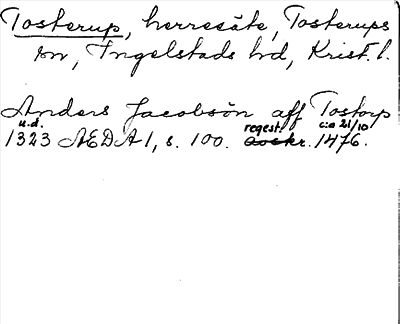 Tosterup, herresäte, Tosterups
sn, Ingelstads hd, Krist. l.
Anders Jacobsön aff Tostorp
u.d. regest. c:a 21/10
1323 AEDA 1, s. 100. avskr. 1476.